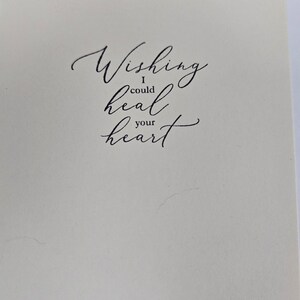 Wishing
I
could
heal
your
heart